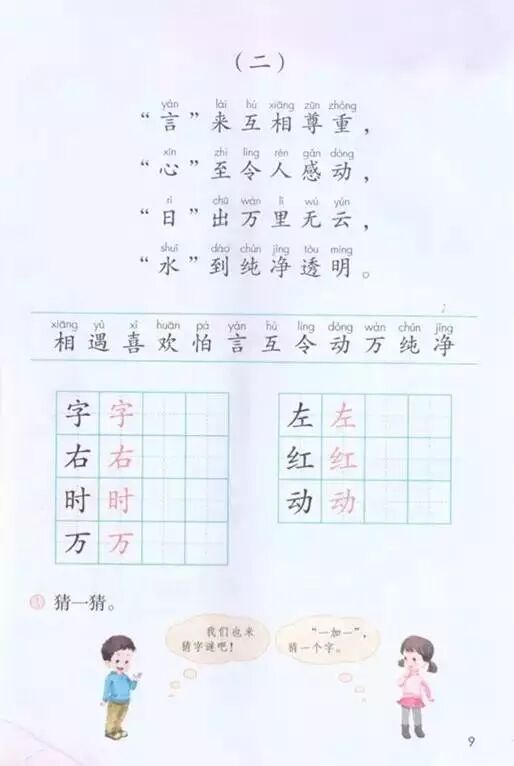 （二）
yán lái hù xiāng zūn zhòng
“言”来互相尊重，
xīn zhì lìng rén gǎn dòng
“心”至令人感动，
rì chū wàn lǐ wú yún
“日”出万里无云，
shuǐ dào chún jìng tòu míng
“水”到纯净透明。
xiāng yù xǐ huān pà yán hù lìng dòng wàn chún jìng
相遇喜欢怕言互令动万纯净
字字
右右
时时
万万
左左
红红
动动
猜一猜。
我们也来
猜字谜吧！
“一加一”，
猜一个字。
9